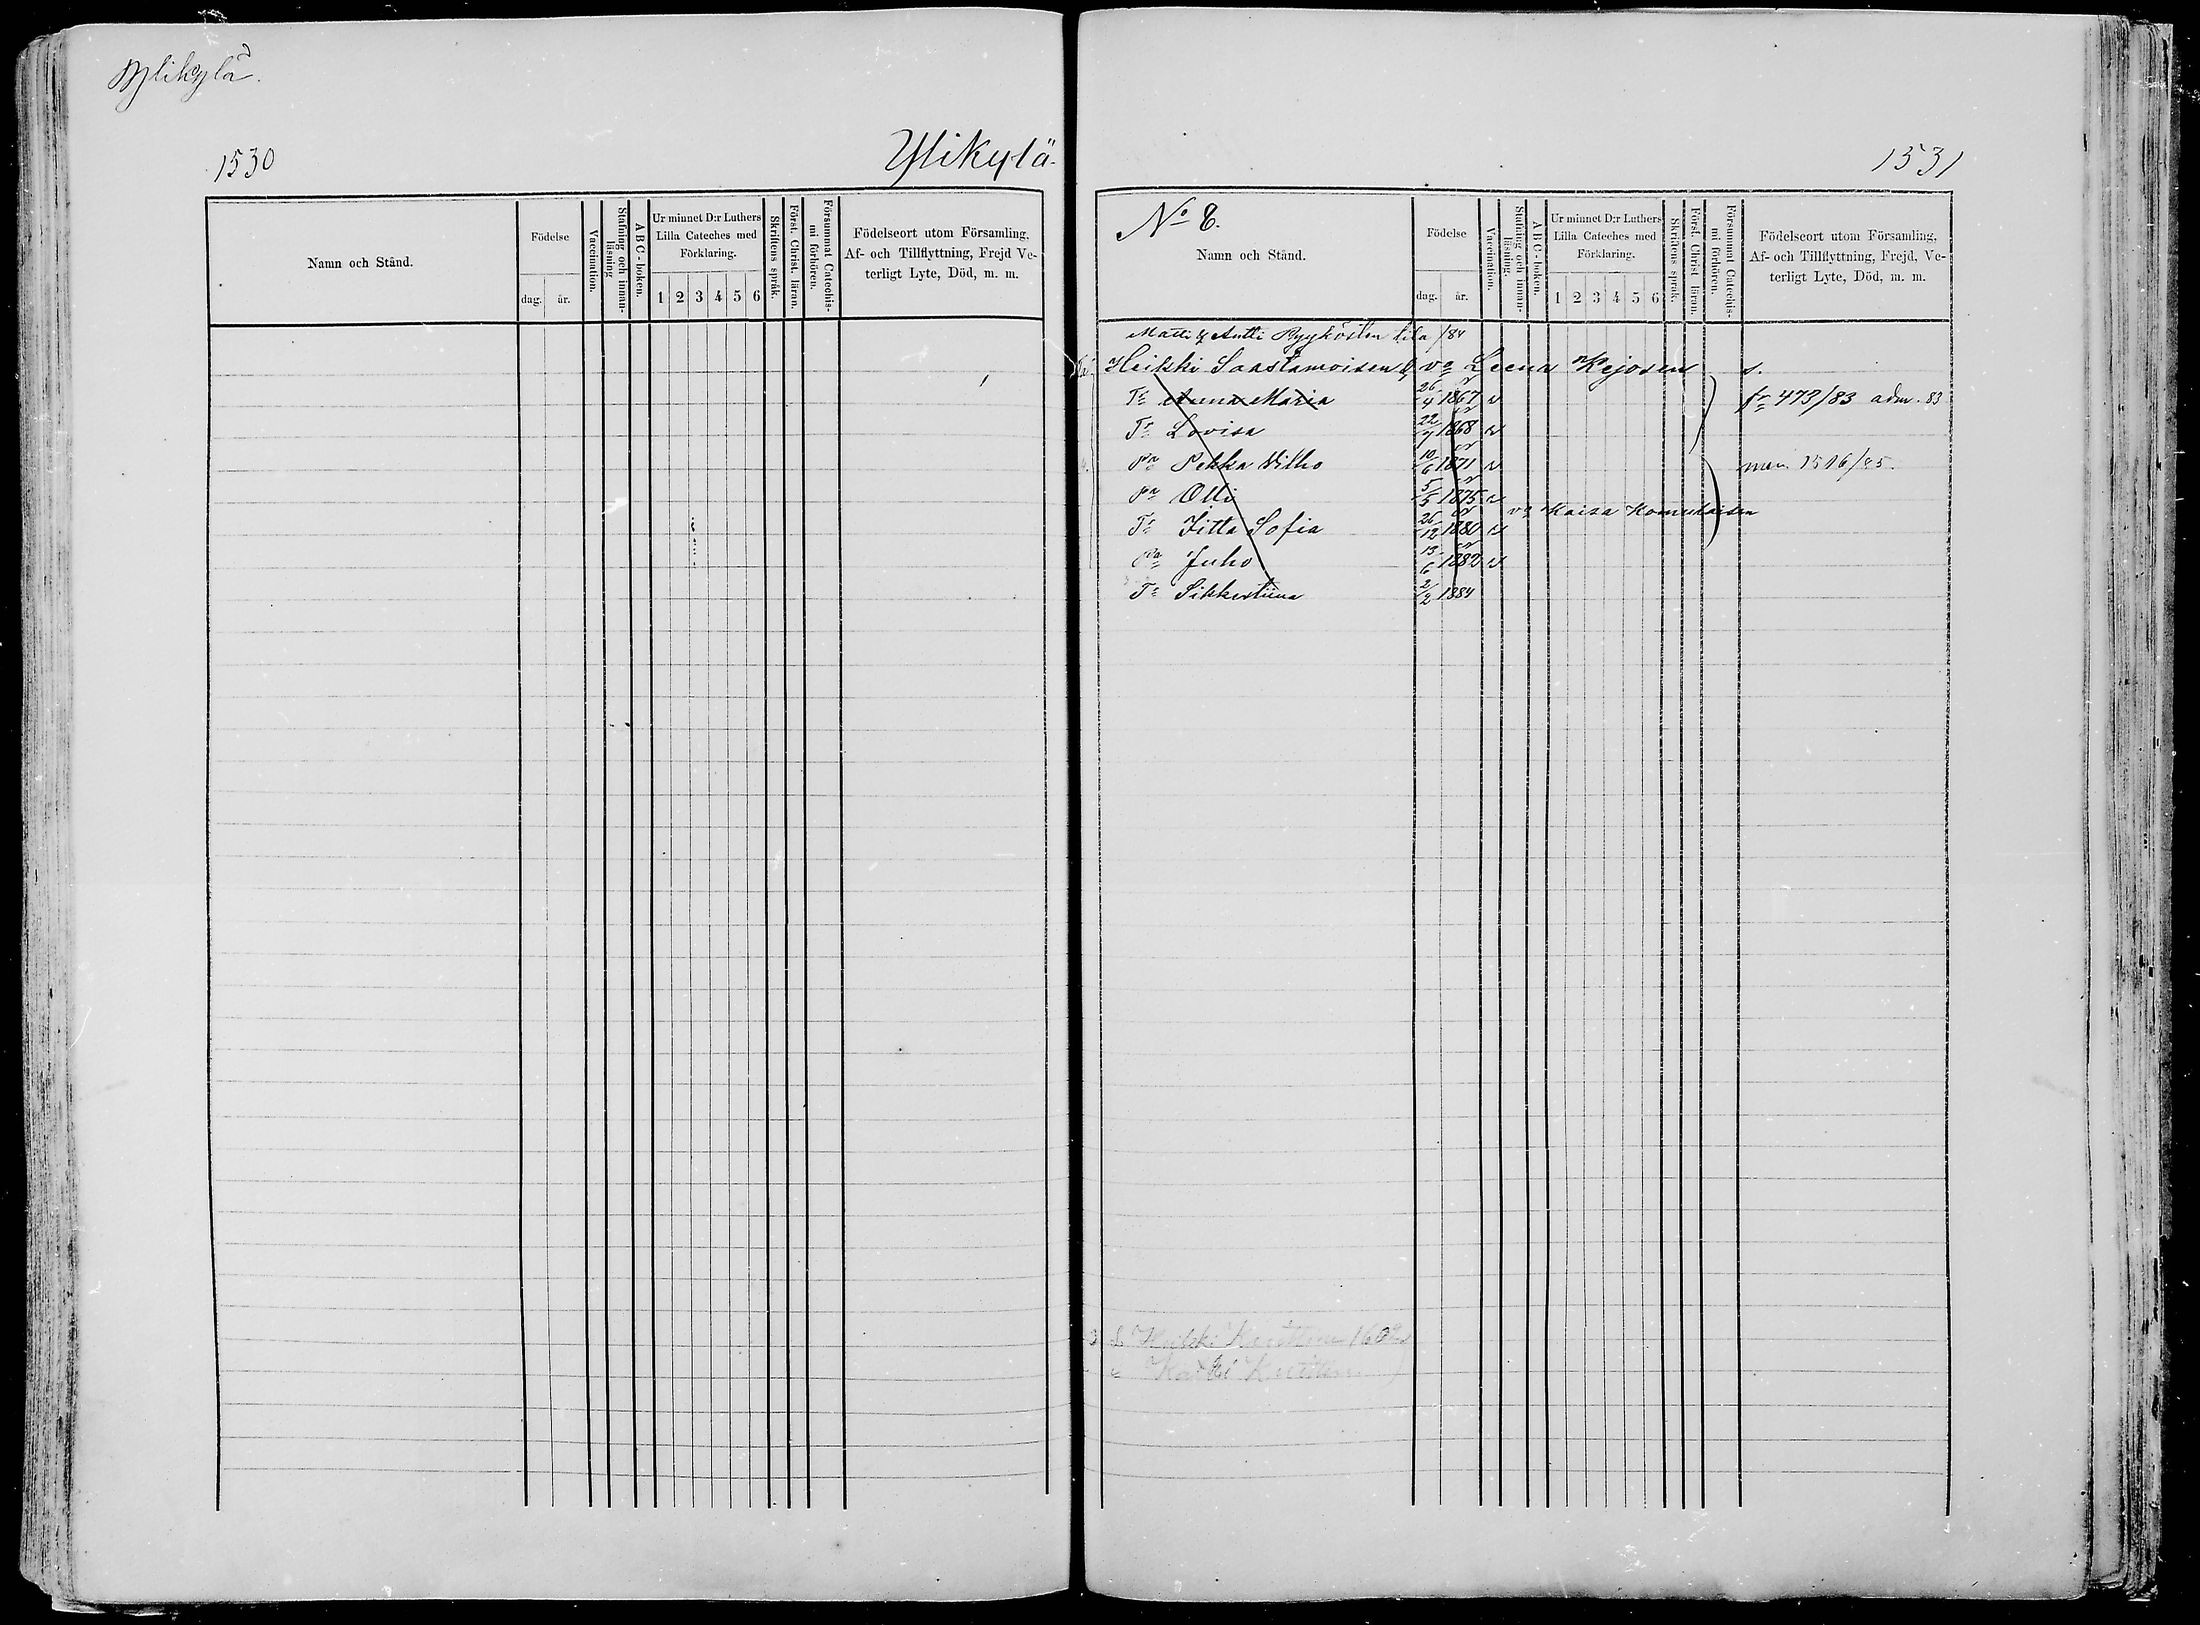 Ylikylä.
1530
Ylikylä.
Namn och Stånd.
Födelse
dag. år.
Vaccination.
Stafning och innan-
läsning
A B C - boken.
Ur minnet D:r Luthers
Lilla Cateches med
Förklaring.
1 2 3 4 5 6
Skriftens språk.
Först. Christ. läran.
Försummat Catechis-
mi förhören.
Födelseort utom Församling,
Af- och Tillflyttning, Frejd Ve-
terligt Lyte, Död, m. m.
1531
No 8.
Namn och Stånd.
Födelse
dag. år.
Vaccination.
Stafning och innan-
läsning.
A B C - boken.
Ur minnet D:r Luthers
Lilla Cateches med
Förklaring.
1 2 3 4 5 6
Skriftens språk.
Först. Christ läran.
Försummat Catechis-
mi förhören.
Födelseort utom Församling,
Af- och Tillflyttning, Frejd, Ve-
terligt Lyte, Död, m. m.
Matti & Antti Ryykösten tila /84
Heikki Saastamoisen & va Leena Rejosen s.
Tr Anna Maria 26/4 1867 v fr 473/83 adm. 83
Tr Lovisa 22/7 1868 v
Pa Pekka Vilho 10/6 1871 v 1516/85.
Pa Olli 5/5 1875 v
va Kaisa
Tr Iitta Sofia 26/12 1880 v
Pa Juho 13/6 1882 v
Tr Sikkerstiina 2/2 1884
Heikki